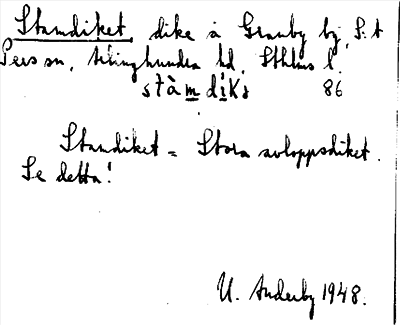 Standiket, dike å Granby by, S:t
Pers sn, Ärlinghundra hd, Sthlms l.
stàmdiks 86
Standiket = Stora avloppsdiket.
Se detta!
U. Anderby 1948.